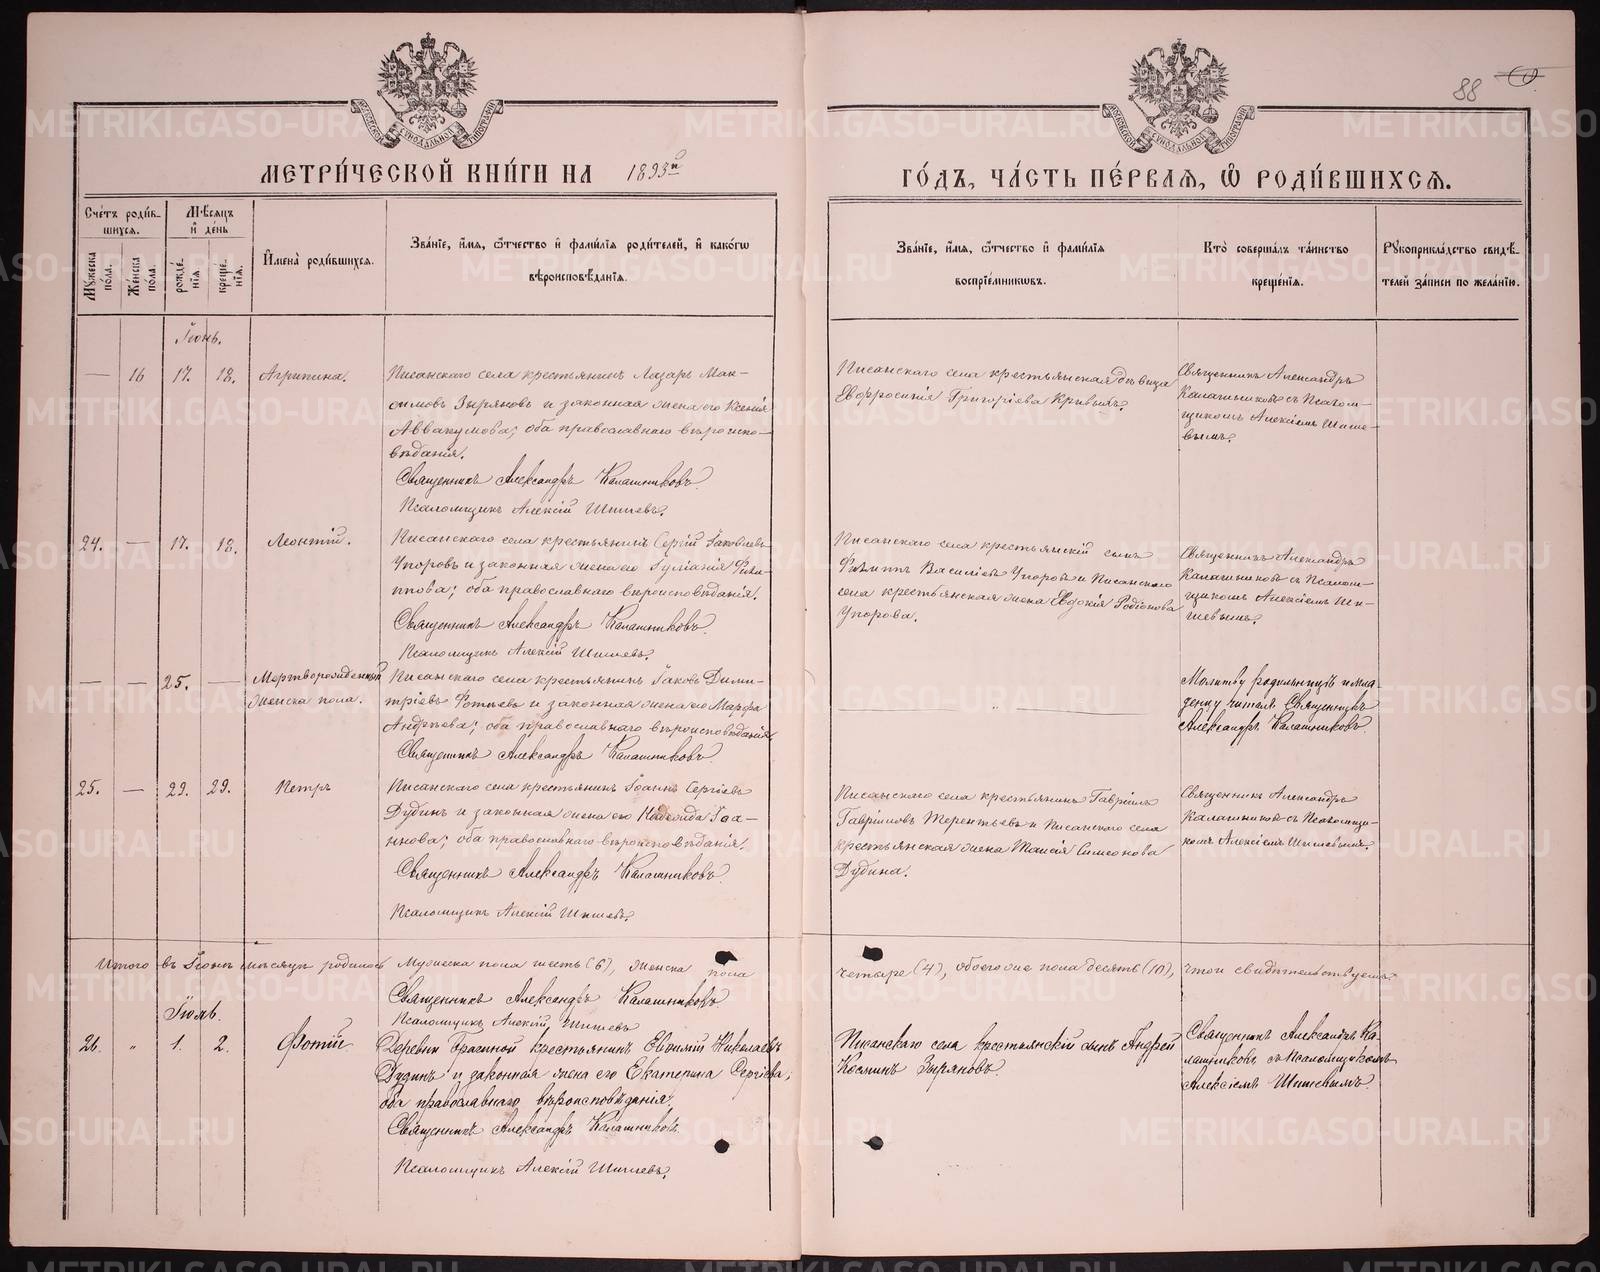 88
МЕТРИ́ЧЕСКОЙ КНИ́ГИ НА 1893й
ГО́ДЪ, ЧА́СТЬ ПЕ́РВАЯ, Ѿ РОДИ́ВШИХСЯ.
Сче́тъ роди́в-
шихся.
Му́жеска пола.
Же́нска пола.
Мѣ́сяцъ
и҆ де́нь
рожде́-
нїя.
креще́-
нїя.
И҆мена̀ роди́вшихся.
Зва́нїе, и҆́мя, ѻ҆́тчество и҆ фами́лїя роди́телей, и҆ како́гѡ
вѣроисповѣ́данїя.
Зва́нїе, и҆́мя, ѻ҆́тчество и҆ фами́лїя
воспрїе́мникѡвъ.
Кто̀ соверша́лъ та́инство
креще́нїя.
Рꙋкоприкла́дство свидѣ́-
телей за́писи по жела́нїю.
Іюнь.
— 16 17. 18. Агрипина.
Писанскаго села крестьянинъ Лазарь Мак-
симовъ Зыряновъ и законная жена его Ксенія
Аввакумова; оба православнаго вѣроиспо-
вѣданія.
Священникъ Александръ Калашниковъ.
Псаломщикъ Алексій Шишевъ.
Писанскаго села крестьянская дѣвица
Евфросинія Григоріева Кривыхъ.
Священникъ Александръ
Калашниковъ съ Псалом-
щикомъ Алексіемъ Шише-
вымъ.
24. — 17. 18. Леонтій.
Писанскаго села крестьянинъ Сергій Іаковлевъ
Упоровъ и законная жена его Іуліанія Фили-
ппова; оба православнаго вѣроисповѣданія.
Священникъ Александръ Калашниковъ.
Псаломщикъ Алексій Шишевъ.
Писанскаго села крестьянскій сынъ
Филиппъ Василіевъ Упоровъ и Писанскаго
села крестьянская жена Евдокія Родіонова
Упорова.
Священникъ Александръ
Калашниковъ съ Псалом-
щикомъ Алексіемъ Ши-
шевымъ.
— — 25. — Мертворожденный
женска пола.
Писанскаго села крестьянинъ Іаковъ Дими-
тріевъ Фотіевъ и законная жена его Марфа
Андреева; оба православнаго вѣроисповѣданія
Священникъ Александръ Калашниковъ.
Молитву родильницѣ и мла-
денцу читалъ Священникъ
Александръ Калашниковъ.
25. — 29. 29. Петръ
Писанскаго села крестьянинъ Іоаннъ Сергіевъ
Дубинъ и законная жена его Надежда Іоа-
ннова; оба православнаго вѣроисповѣданія.
Священникъ Александръ Калашниковъ.
Псаломщикъ Алексій Шишевъ.
Писанскаго села крестьянинъ Гавріилъ
Гавріиловъ Терентьевъ и Писанскаго села
крестьянская жена Таисія Симеонова
Дубина.
Священникъ Александръ
Калашниковъ съ Псаломщи-
комъ Алексіемъ Шишевымъ.
Итого въ Іюнѣ мѣсяцѣ родилось мужеска пола шесть (6), женска пола
четыре (4), обоего же пола десять (10), что и свидѣтельствуемъ
Священникъ Александръ Калашниковъ
Псаломщикъ Алексій Шишевъ
Іюль.
26. „ 1. 2. Фотій
Деревни Брагиной крестьянинъ Евѳимій Николаевъ
Дудинъ и законная жена его Екатерина Сергіева;
оба православнаго вѣроисповѣданія.
Священникъ Александръ Калашниковъ.
Псаломщикъ Алексій Шишевъ.
Писанскаго села крестьянскій сынъ Андрей
Косминъ Зыряновъ.
Священникъ Александръ Ка-
лашниковъ съ Псаломщикомъ
Алексіемъ Шишевымъ.
METRIKI.GASO-URAL.RU